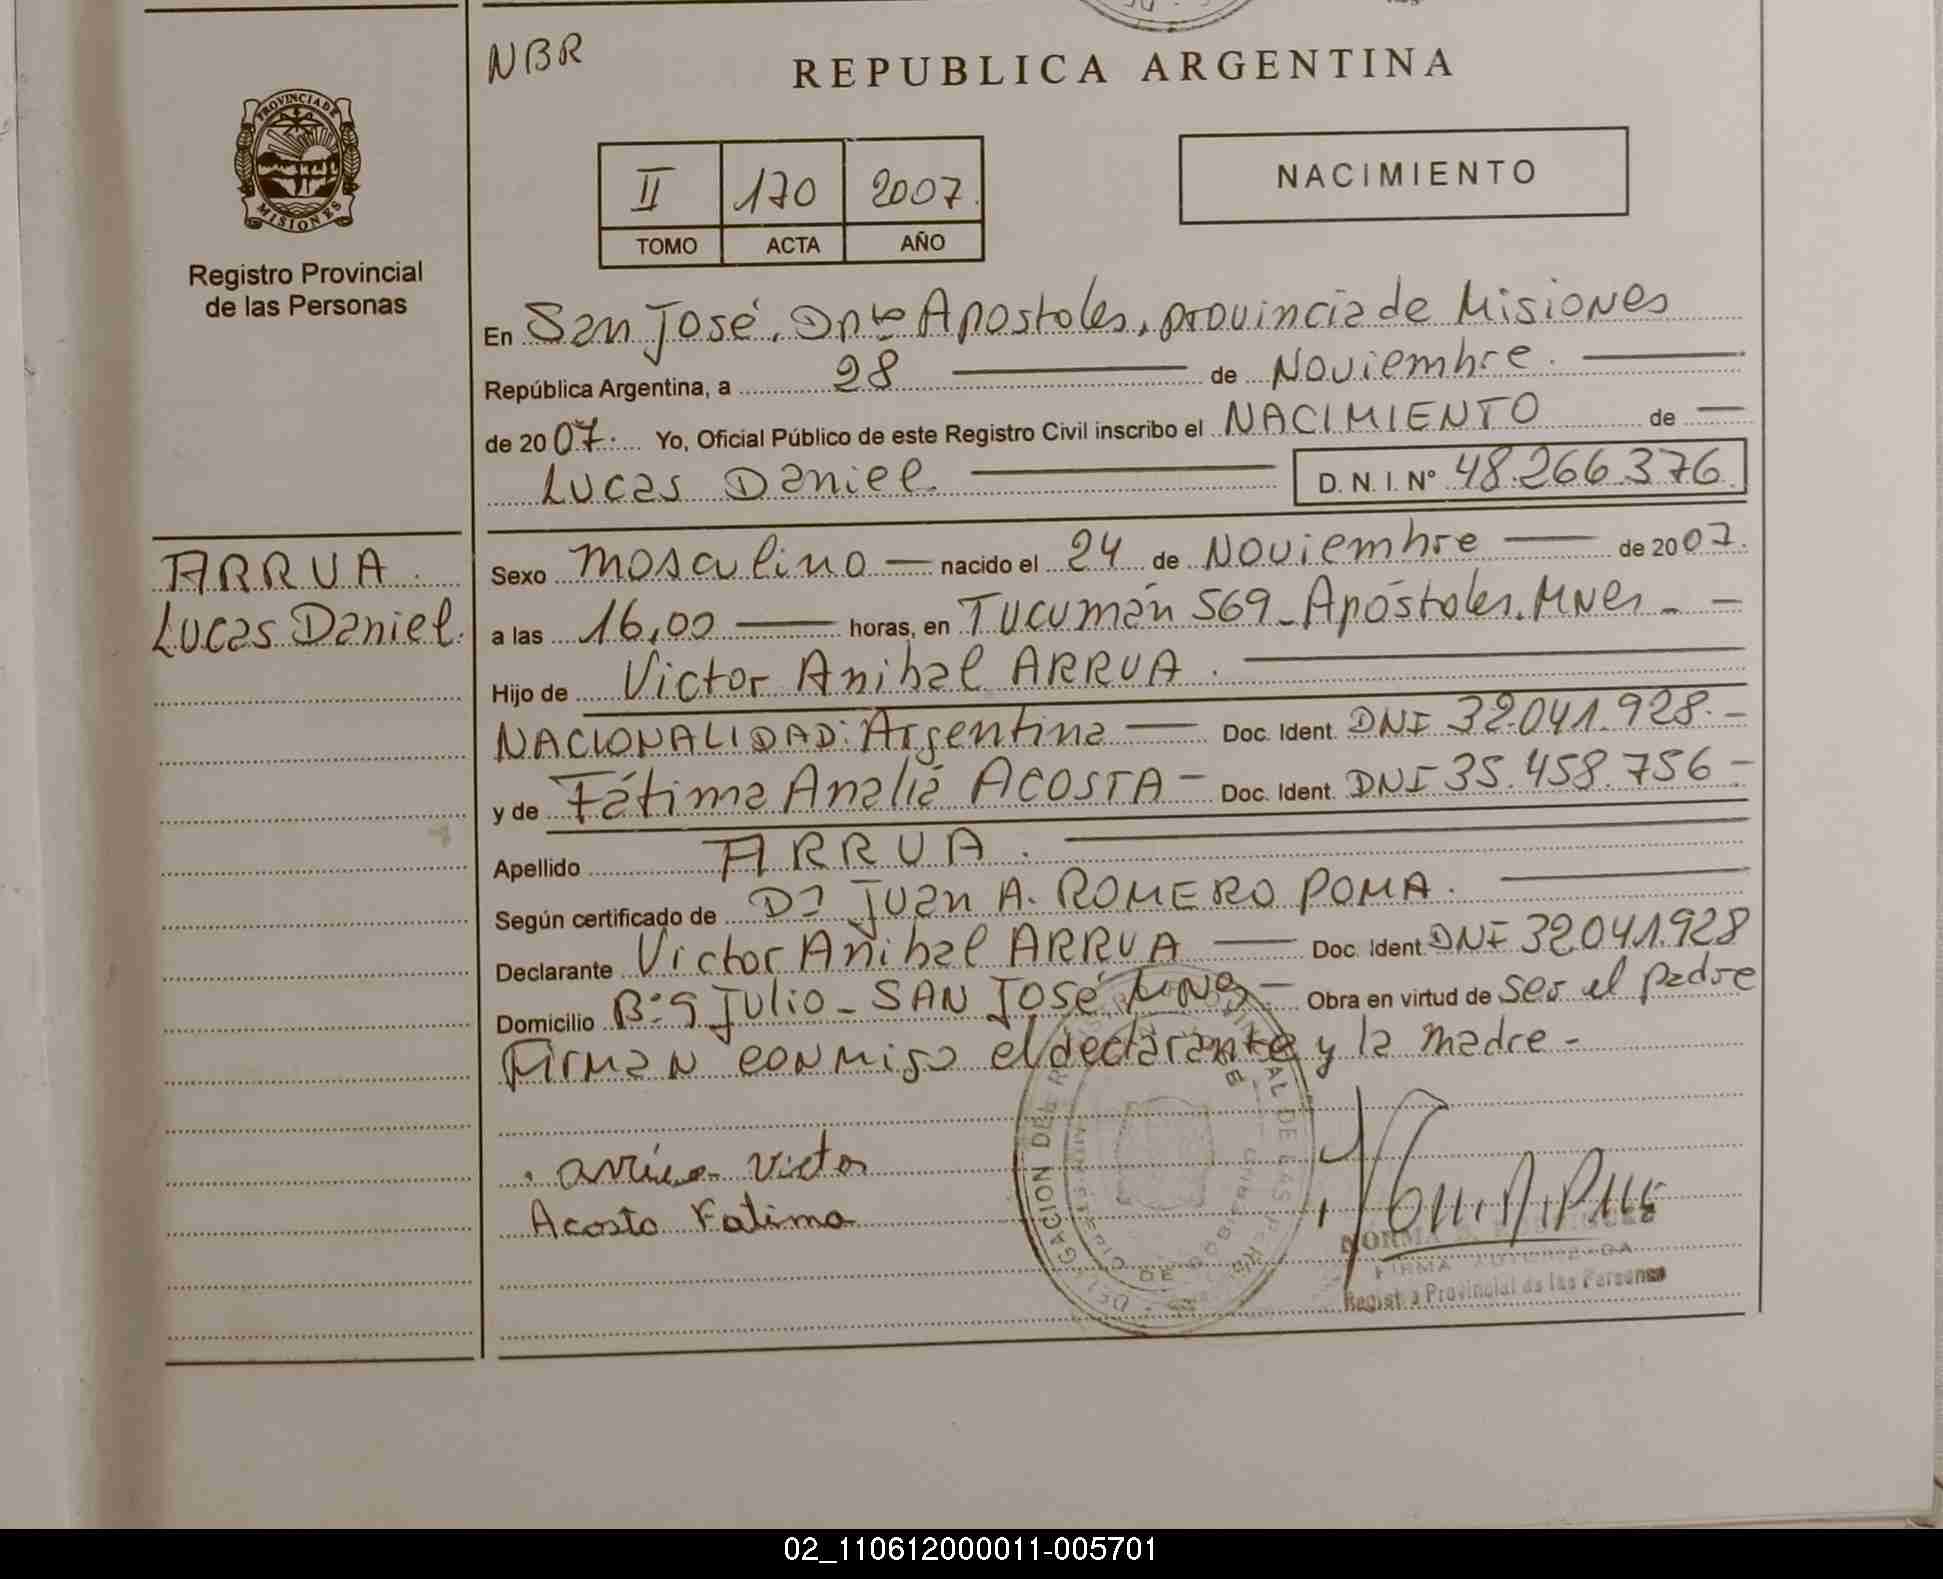 NBR
REPUBLICA ARGENTINA
PROVINCIA DE
MISIONES
Registro Provincial
de las Personas
II 170 2007.
TOMO ACTA AÑO
NACIMIENTO
En San José, Dpto Apostoles, provincia de Misiones
República Argentina, a 28 de Noviembre.
de 2007. Yo, Oficial Público de este Registro Civil inscribo el NACIMIENTO de
Lucas Daniel. D. N. I. Nº 48.266.376
ARRUA.
Lucas Daniel.
Sexo Masculino nacido el 24 de Noviembre de 2007.
a las 16,00 horas, en Tucumán 569 - Apóstoles. Mnes -
Hijo de Victor Anibal ARRUA.
NACIONALIDAD: Argentina Doc. Ident. DNI 32.041.928.-
y de Fátima Analía ACOSTA - Doc. Ident. DNI 35.458.756-
Apellido ARRUA.
Según certificado de Dr Juan A. ROMERO POMA.
Declarante Victor Anibal ARRUA Doc. Ident. DNI 32.041.928
Domicilio Bº 9 Julio - SAN José Mnes - Obra en virtud de ser el padre
Firman conmigo el declarante y la madre -
Victor
Acosta Fatima
DELEGACION DEL
DE LAS
DE
NORMA
FIRMA AUTORIZADA
Registro Provincial de las Personas
02_110612000011-005701